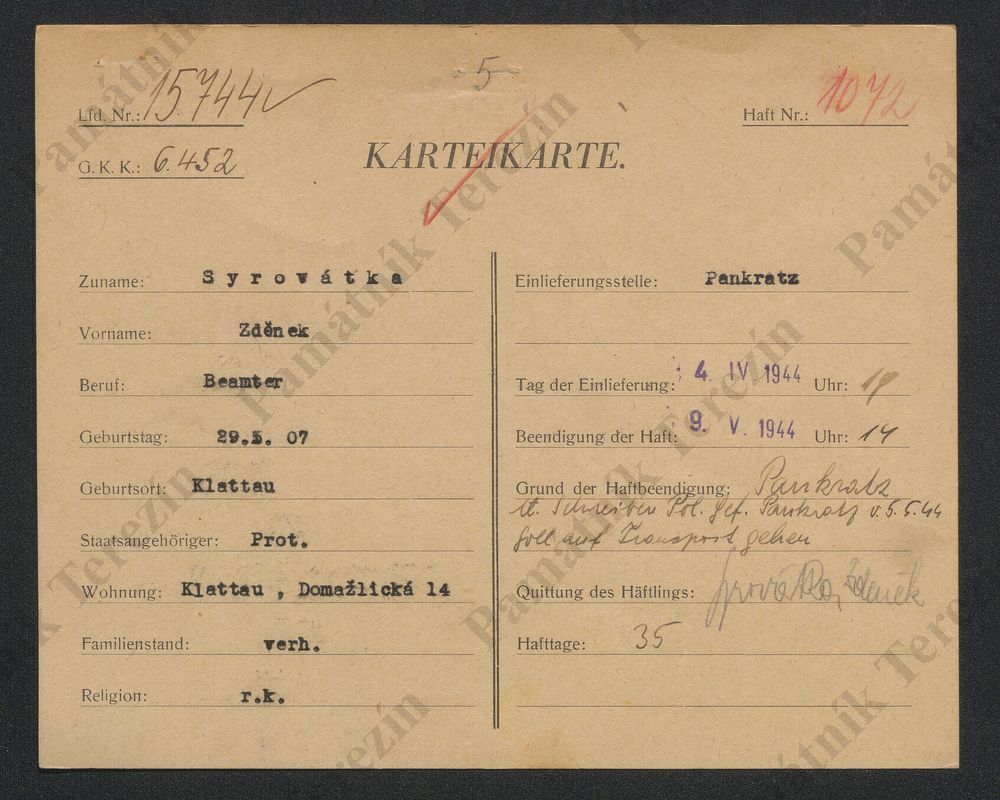 5
Lfd. Nr.: 15744
Haft Nr.: 1072
G. K. K.: 6.452
KARTEIKARTE.
Zuname: Syrovátka
Vorname: Zděnek
Beruf: Beamter
Geburtstag: 29.5. 07
Geburtsort: Klattau
Staatsangehöriger: Prot.
Wohnung: Klattau , Domažlická 14
Familienstand: verh.
Religion: r.k.
Einlieferungsstelle: Pankratz
Tag der Einlieferung: 4. IV 1944 Uhr:
Beendigung der Haft: 9. V. 1944 Uhr: 14
Grund der Haftbeendigung: Pankratz
lt. Schreiben Pol. Gef. Pankratz v. 5.5.44
soll auf Transport gehen
Quittung des Häftlings: Syrovátka Zdeněk
Hafttage: 35
Památník Terezín